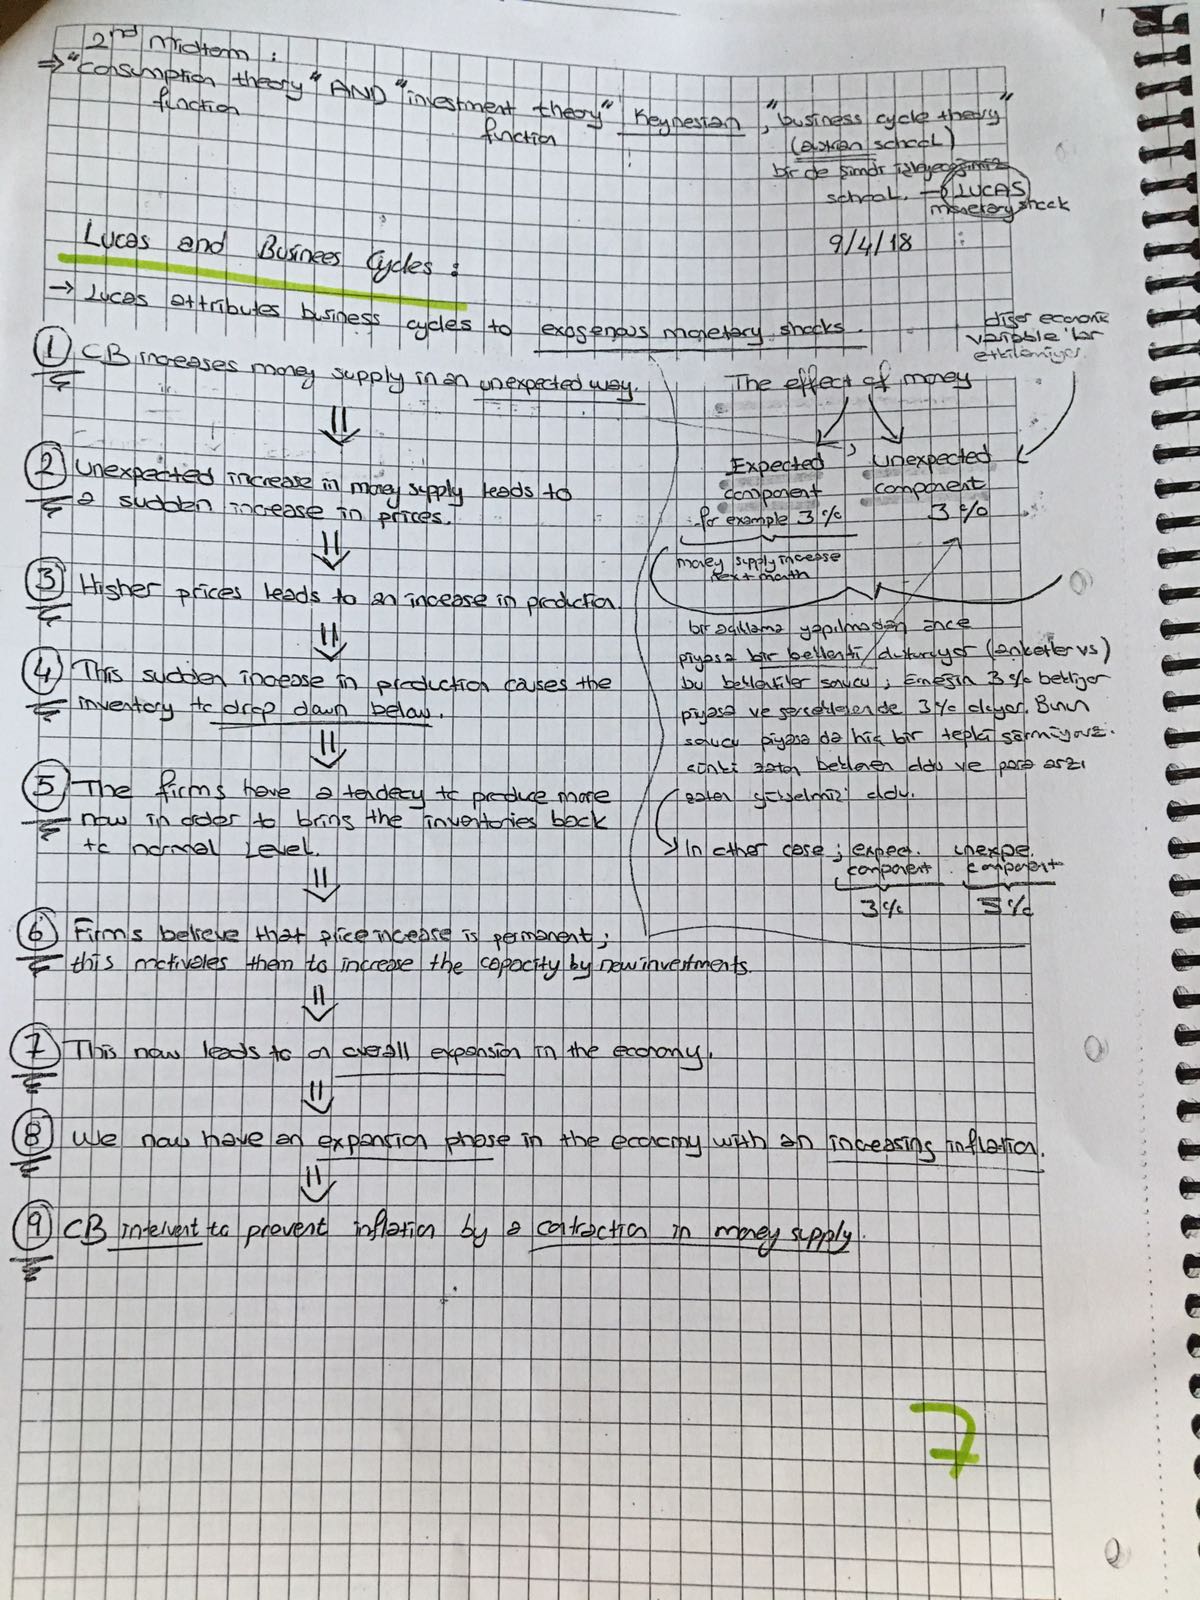 2nd Midterm :
⇒ "Consumption theory" AND "investment theory" Keynesian, "business cycle theory"
function
function
school)
bir de şimdi
school. → LUCAS
monetary shock
9/4/18
Lucas and Businees Cycles :
→ Lucas attributes business cycles to exogenous monetary shocks.
diğer economic
variable'lar
etkilemiyor.
① CB increases money supply in an unexpected way.
⇓
② Unexpected increase in money supply leads to
a sudden increase in prices.
⇓
③ Higher prices leads to an increase in production.
⇓
④ This sudden increase in production causes the
inventory to drop down below.
⇓
⑤ The firms have a tendecy to produce more
now in order to bring the inventories back
to normal Level.
⇓
⑥ Firms believe that price increase is permanent;
this motivates them to increase the capacity by new investments.
⇓
⑦ This now leads to an overall expansion in the economy.
⇓
⑧ We now have an expansion phase in the economy with an increasing inflation.
⇓
⑨ CB intervent to prevent inflation by a contraction in money supply.
The effect of money
Expected
component
for example 3%
money supply increase
next month
unexpected
component
3%
bir açıklama yapılmadan önce
piyasa bir beklenti oluşturuyor (anketler vs)
bu beklentiler sonucu; Örneğin 3% bekliyor
piyasa ve gerçekleşen de 3% oluyor. Bunun
sonucu piyasa da hiç bir tepki görmüyoruz.
çünkü zaten beklenen oldu ve para arzı
zaten yükselmiş oldu.
→ In other case ; expect. unexpe.
component component
3% 5%
7